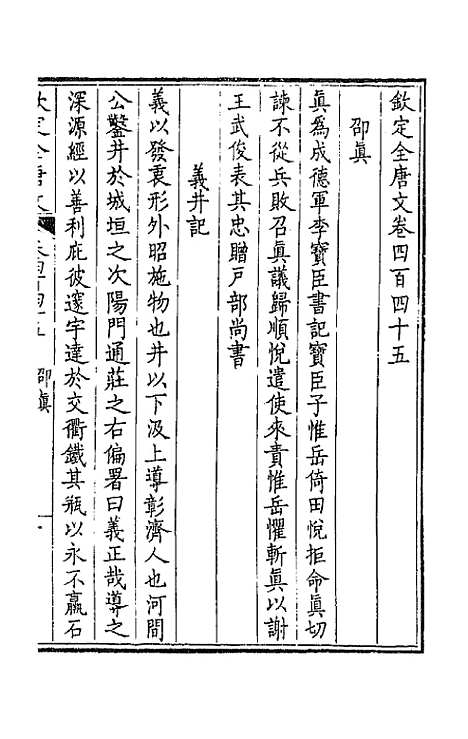 欽定全唐文卷四百四十五
邵眞
眞爲成德軍李寶臣書記寶臣子惟岳倚田悅拒命眞切
諫不從兵敗召眞議歸順悅遣使來責惟岳懼斬眞以謝
王武俊表其忠贈戸部尚書
義井記
義以發衷形外昭施物也井以下汲上導彰濟人也河間
公鑿井於城垣之次陽門通莊之右偏署曰義正哉導之
深源經以善利庇彼邃宇達於交衢鐵其瓶以永不羸石
邵眞